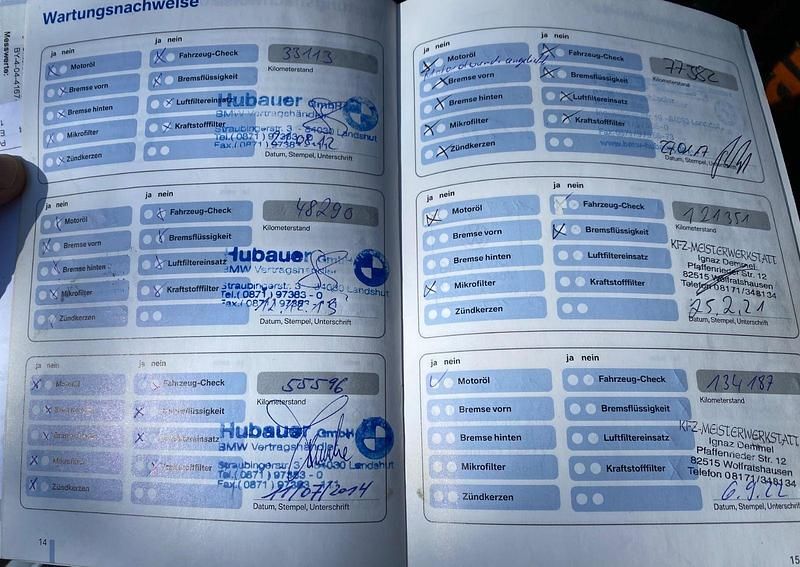 Wartungsnachweise
Messwerte:
BY-4-04-4167-
ja nein
ja nein
Motoröl
Fahrzeug-Check
33113
Kilometerstand
Bremse vorn
Bremsflüssigkeit
Bremse hinten
Luftfiltereinsatz
Mikrofilter
Kraftstofffilter
Zündkerzen
Hubauer GmbH
BMW Vertragshändler
Straubingerstr. 3 - 84030 Landshut
Tel.(0871) 97383 - 0
Datum, Stempel, Unterschrift
ja nein
ja nein
Motoröl
Fahrzeug-Check
48290
Kilometerstand
Bremse vorn
Bremsflüssigkeit
Bremse hinten
Luftfiltereinsatz
Mikrofilter
Kraftstofffilter
Zündkerzen
Hubauer GmbH
BMW Vertragshändler
Straubingerstr. 3 - 84030 Landshut
Tel.(0871) 97383 - 0
Datum, Stempel, Unterschrift
ja nein
ja nein
Motoröl
Fahrzeug-Check
55596
Kilometerstand
Bremse vorn
Bremsflüssigkeit
Bremse hinten
Luftfiltereinsatz
Mikrofilter
Kraftstofffilter
Zündkerzen
Hubauer GmbH
BMW Vertragshändler
Straubingerstr. 3 - 84030 Landshut
Tel.(0871) 97383 - 0
11/07/2014
Datum, Stempel, Unterschrift
14
ja nein
ja nein
Motoröl
Fahrzeug-Check
77382
Kilometerstand
Bremse vorn
Bremsflüssigkeit
Bremse hinten
Luftfiltereinsatz
Mikrofilter
Kraftstofffilter
Zündkerzen
Datum, Stempel,
ja nein
ja nein
Motoröl
Fahrzeug-Check
121351
Kilometerstand
Bremse vorn
Bremsflüssigkeit
Bremse hinten
Luftfiltereinsatz
Mikrofilter
Kraftstofffilter
Zündkerzen
KFZ-MEISTERWERKSTATT
Ignaz Demmel
Pfaffenrieder Str. 12
82515 Wolfratshausen
Telefon 08171/348134
25.2.21
Datum, Stempel, Unterschrift
ja nein
ja nein
Motoröl
Fahrzeug-Check
134187
Kilometerstand
Bremse vorn
Bremsflüssigkeit
Bremse hinten
Luftfiltereinsatz
Mikrofilter
Kraftstofffilter
Zündkerzen
KFZ-MEISTERWERKSTATT
Ignaz Demmel
Pfaffenrieder Str. 12
82515 Wolfratshausen
Telefon 08171/348134
6.9.22
Datum, Stempel, Unterschrift
15